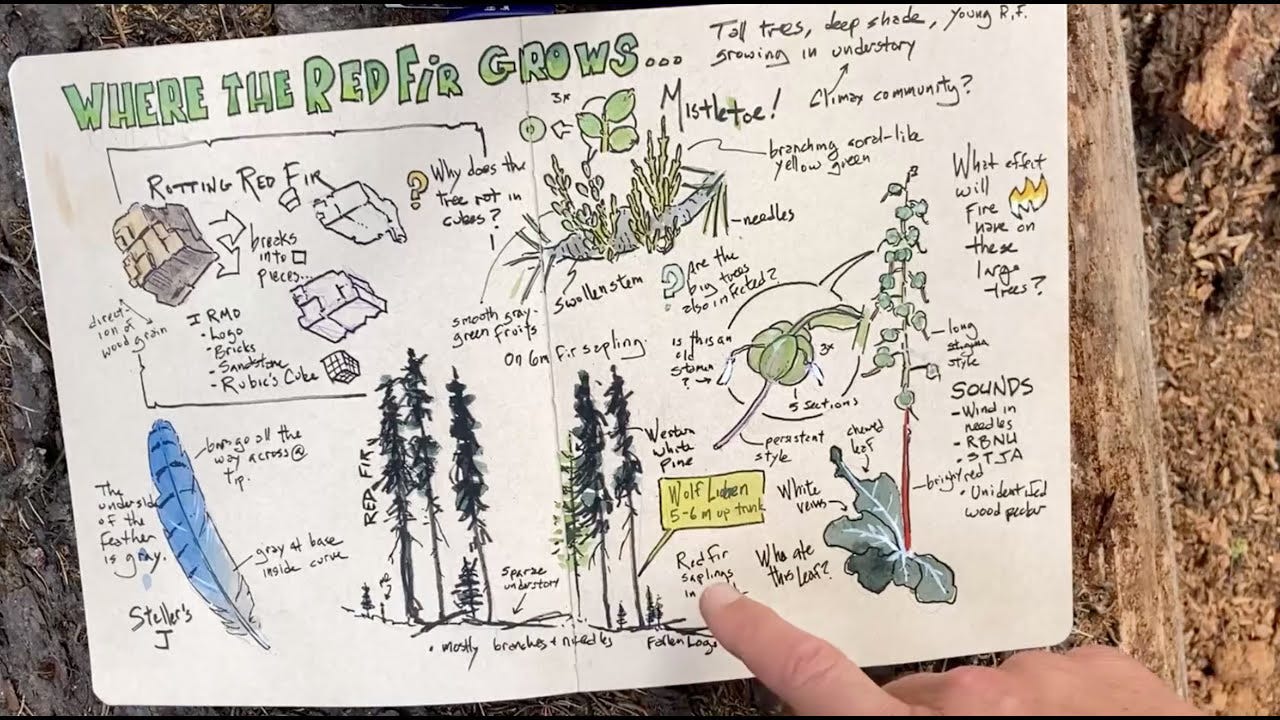 WHERE THE RED FIR GROWS...
Tall trees, deep shade, young R.F.
growing in understory
Climax community?
ROTTING RED FIR
breaks
into □
pieces...
direct-
ion of
wood grain
I RMD
• Lego
• Bricks
• Sandstone
• Rubic's Cube
? Why does the
tree rot in
cubes?
3x
Mistletoe!
branching coral-like
yellow green
needles
swollen stem
smooth gray-
green fruits
On 6m fir sapling.
? Are the
big trees
also infected?
What effect
will
Fire
have on
these
large
trees?
is this an
old
stamen
?
3x
5 sections
persistent
style
long
style
SOUNDS
- Wind in
needles
- RBNU
- STJA
• Unidentified
wood pecker
bright red
chewed
leaf
White
veins
Who ate
this leaf?
The
underside
of the
feather
is gray.
bars go all the
way across @
tip.
gray at base
inside curve
Steller's
J
RED FIR
sparse
understory
• mostly branches + needles
Western
white
pine
Wolf Lichen
5-6 m up trunk
Red fir
saplings
in
Fallen Logs